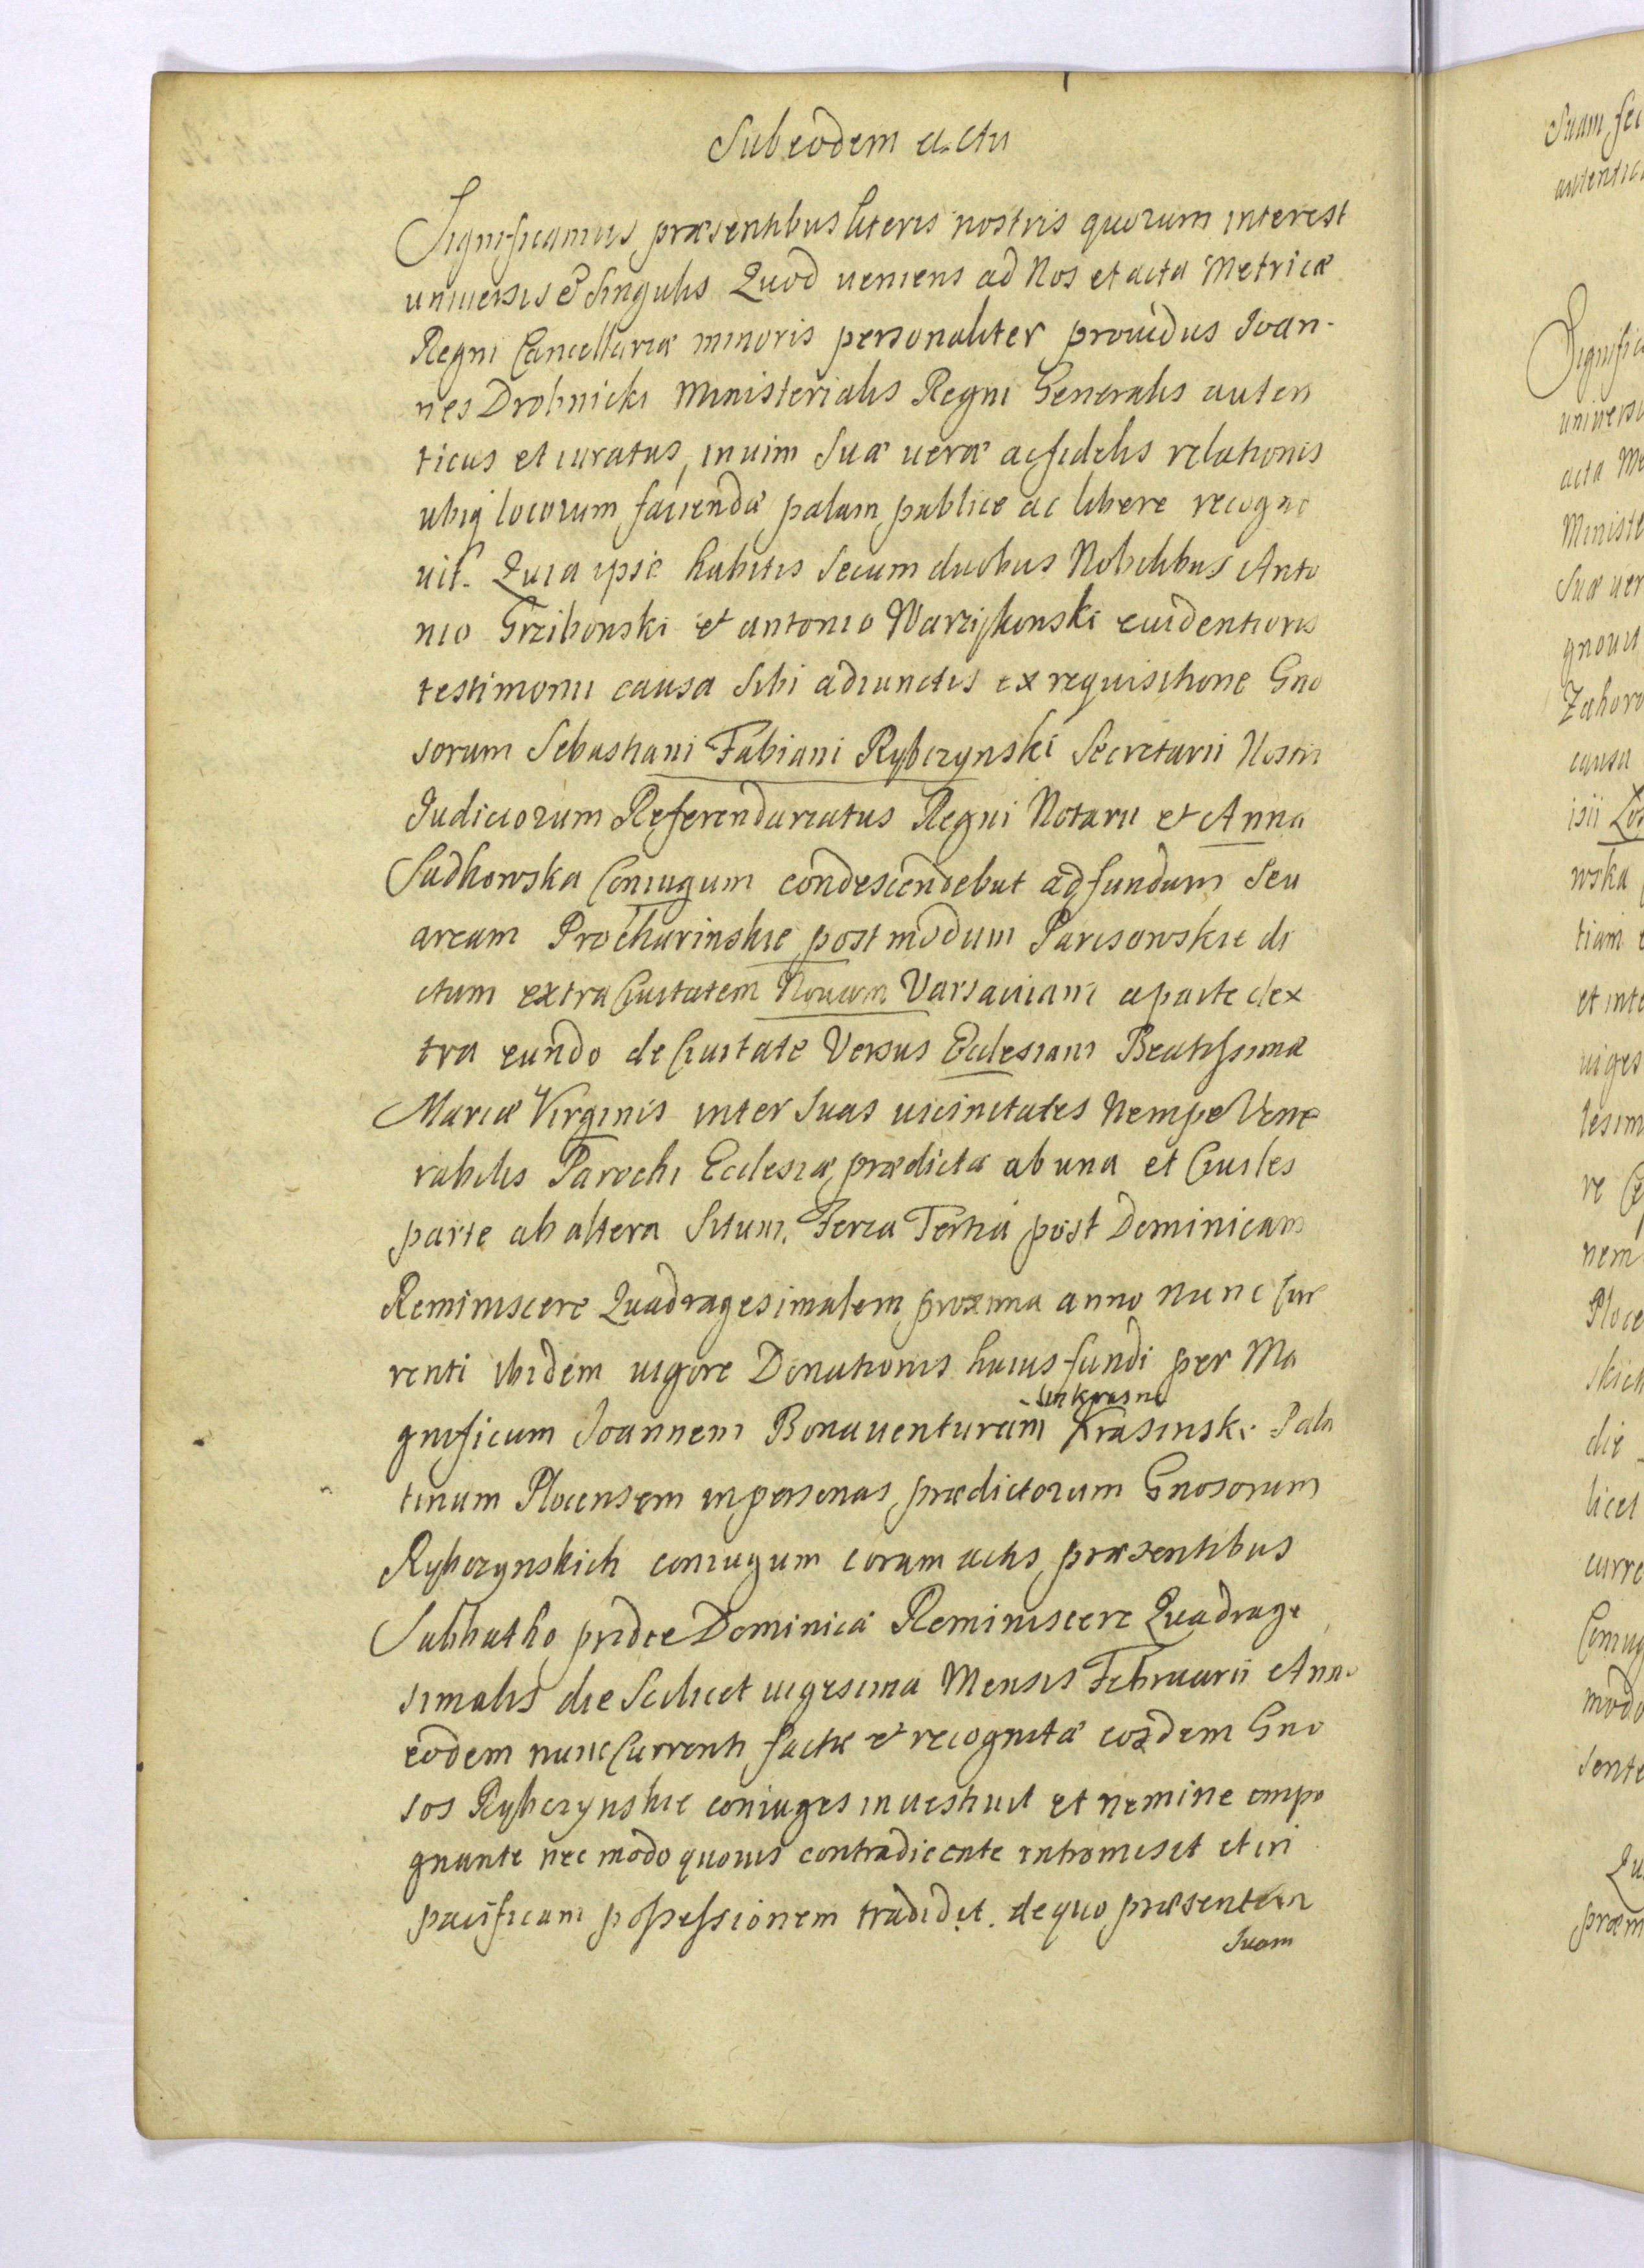 Sub eodem actu
Significamus præsentibus literis nostris quorum interest
universis & singulis Quod veniens ad Nos et acta Metricæ
Regni Cancellariæ minoris personaliter providus Ioan-
nes Drobnicki Ministerialis Regni Generalis auten
ticus et iuratus, in vim suæ veræ ac fidelis relationis
ubiq locorum faciendæ palam publice ac libere recogno
vit. Quia ipse habitis secum duobus Nobilibus Anto
nio Grzibonski et antonio Warzijkonski evidentioris
testimonii causa sibi adiunctis ex requisitione Gno
sorum Sebastiani Fabiani Rybczynski Secretarii Nostri
Iudiciorum Referendariatus Regni Notarii et Anna
Sudkowska Coniugum condescendebat ad fundum seu
aream Prochurinskie post modum Parisowskie di
ctum extra Civitatem Novam Varsaviam a parte dex
tra eundo de Civitate Versus Ecclesiam Beatissimæ
Mariæ Virginis inter suas vicinitates Nempe Vene
rabilis Parochi Ecclesiæ prædictæ ab una et Civiles
parte ab altera situm, Feria Tertia post Dominicam
Reminiscere Quadragesimalem proxima anno nunc cur
renti ibidem vigore Donationis huius fundi per Ma
in krasne
gnificum Joannem Bonaventuram Krasinski Pala
tinum Plocensem in personas prædictorum Gnosorum
Rybczynskich coniugum coram actis præsentibus
Sabbatho pridie Dominicæ Reminiscere Quadrage
simalis die scilicet vigesima Mensis Februarii Anno
eodem nunc Currenti factæ et recognitæ eosdem Gno
sos Rybczynskie coniuges investivit et nemine impo
gnante nec modo quovis contradicente intromisit et in
pacificam possessionem tradidit. de quo præsentem
suam